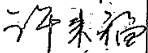 许来福